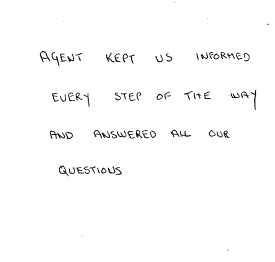 AGENT KEPT US INFORMED
EVERY STEP OF THE WAY
AND ANSWERED ALL OUR
QUESTIONS